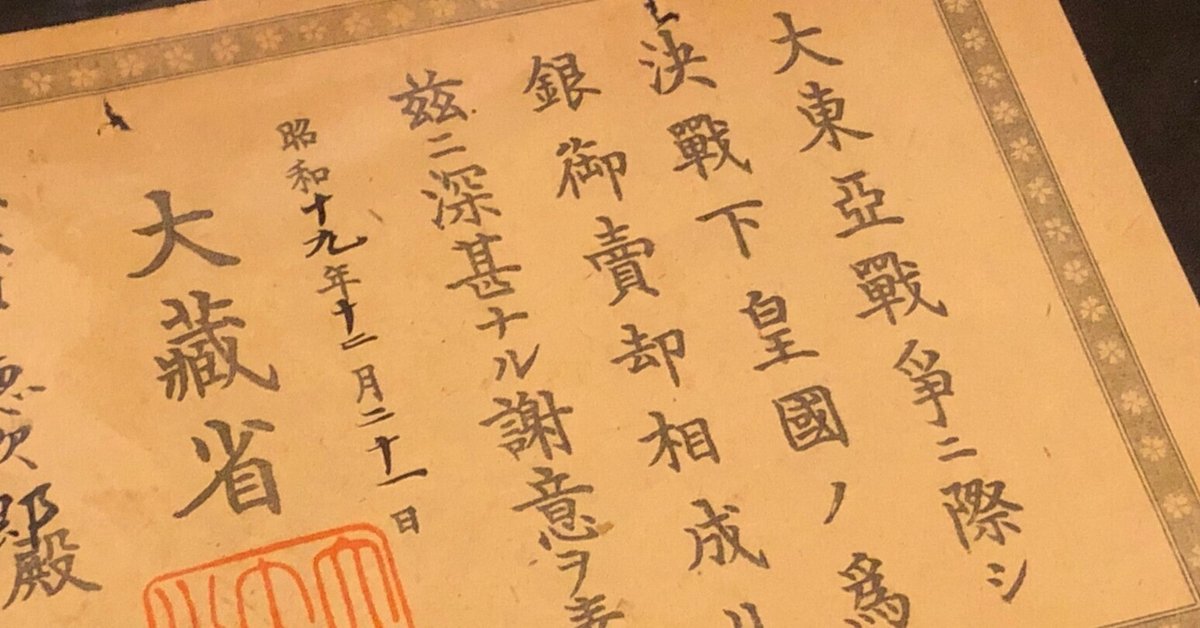 大東亞戰爭ニ際シ
決戰下皇國ノ爲
銀御賣却相成リ
茲ニ深甚ナル謝意ヲ表
昭和十九年十二月二十一日
大藏省
郎殿